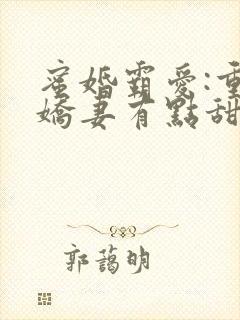 蜜婚霸愛:重
嬌妻有點甜
郭藹明